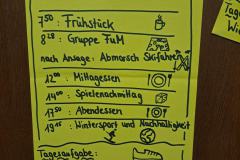 7⁵⁰ : Frühstück
8²⁸ : Gruppe FuM
nach Ansage: Abmarsch Skifahren
12⁰⁰ : Mittagessen
14⁰⁰ : Spielenachmittag
17⁵⁰ : Abendessen
19¹⁵ : Wintersport und Nachhaltigkeit
Tagesaufgabe: